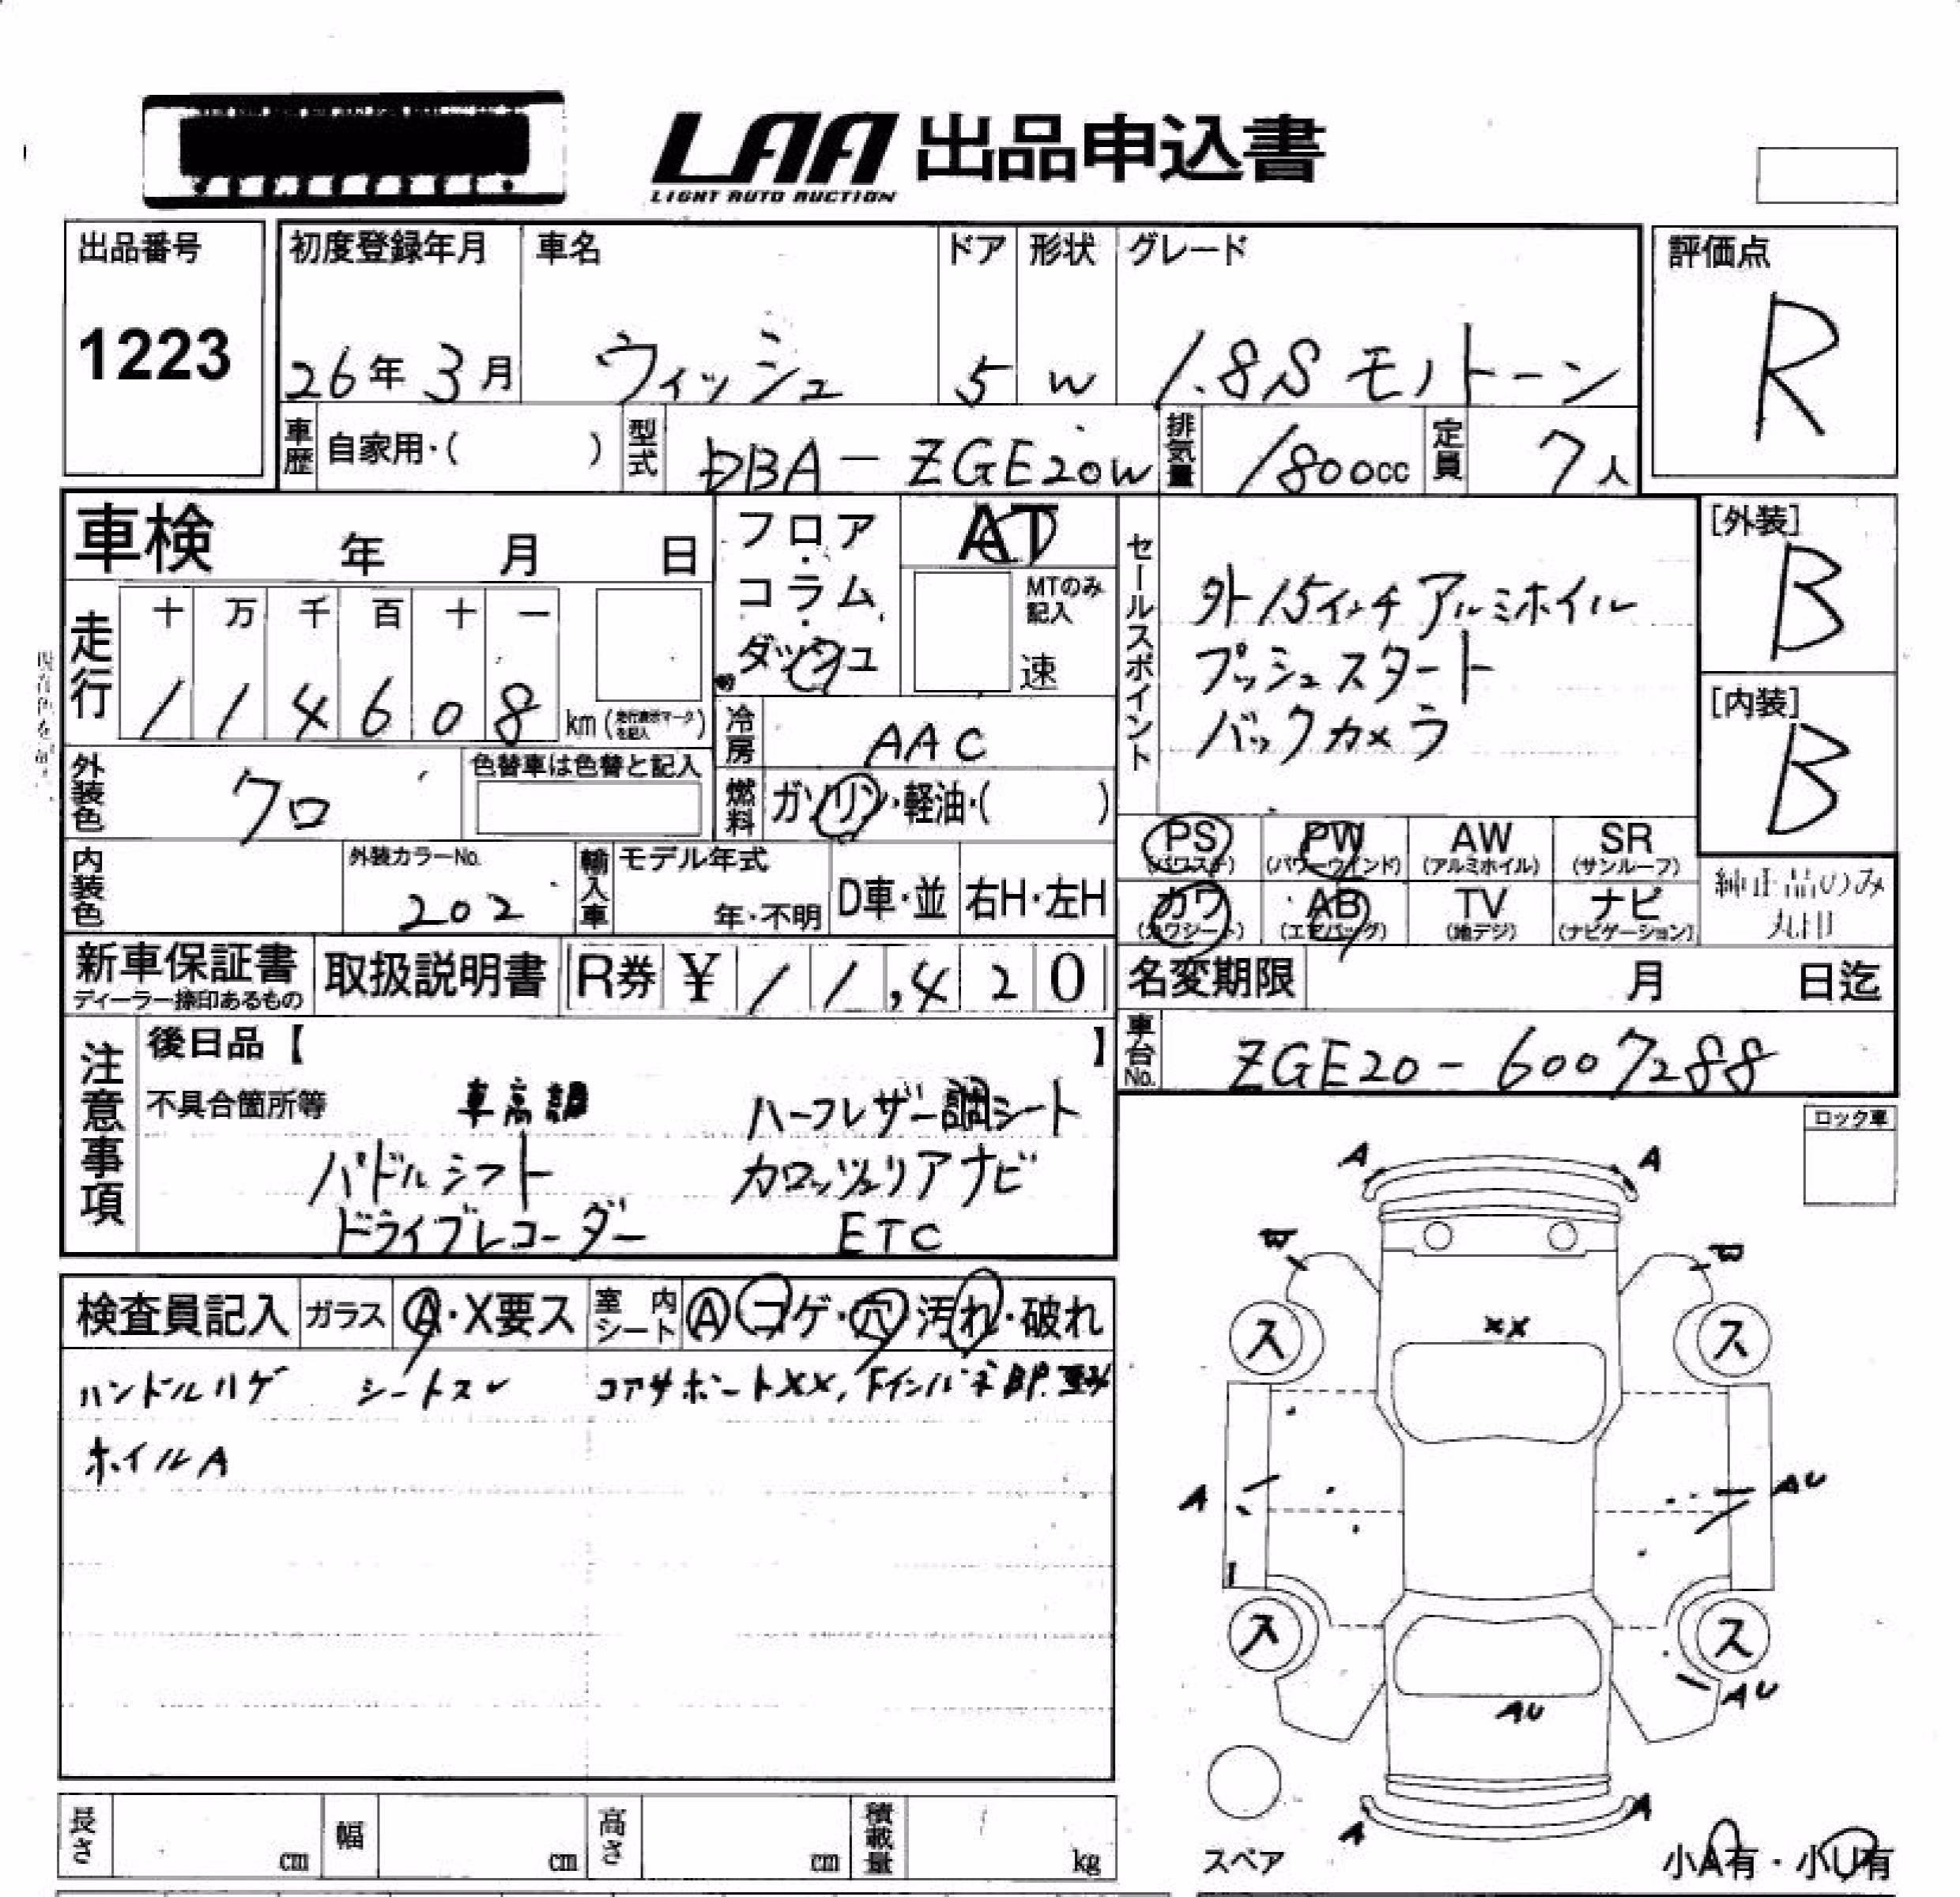 LAA 出品申込書
LIGHT AUTO AUCTION
出品番号 初度登録年月 車名 ドア 形状 グレード 評価点
1223 26年 3月 ウィッシュ 5 W 1.8S モノトーン R
車歴 自家用・( ) 型式 DBA-ZGE20W 排気量 1800cc 定員 7人
車検 年 月 日
フロア・コラム・ダッシュ
AT
MTのみ記入
速
セールスポイント
外15インチアルミホイル
プッシュスタート
バックカメラ
[外装]
B
[内装]
B
走行 十 万 千 百 十 一
114608 km (走行表示マークを記入)
冷房 AAC
燃料 ガソリン・軽油・( )
外装色 クロ 色替車は色替と記入
内装色 外装カラーNo. 202 輸入車 モデル年式 年・不明 D車・並 右H・左H
PS (パワステ) PW (パワーウインド) AW (アルミホイル) SR (サンルーフ)
カワ (カワシート) AB (エアバッグ) TV (地デジ) ナビ (ナビゲーション)
純正品のみ
丸印
新車保証書 ディーラー捺印あるもの 取扱説明書 R券 ¥ 11,420
名変期限 月 日迄
車台No. ZGE20-6007288
注意事項
後日品【 】
不具合箇所等 車高調 ハーフレザー調シート
パドルシフト カロッツェリアナビ
ドライブレコーダー ETC
ロック車
検査員記入 ガラス A・X要ス 室内シート A コゲ・穴 汚れ・破れ
ハンドルハゲ シートスレ コアサポートXX,
ホイルA
A A
W W
XX
ス ス
A AU
ス ス
AU
AU
A A
スペア
小A有・小U有
長さ cm 幅 cm 高さ cm 積載量 kg